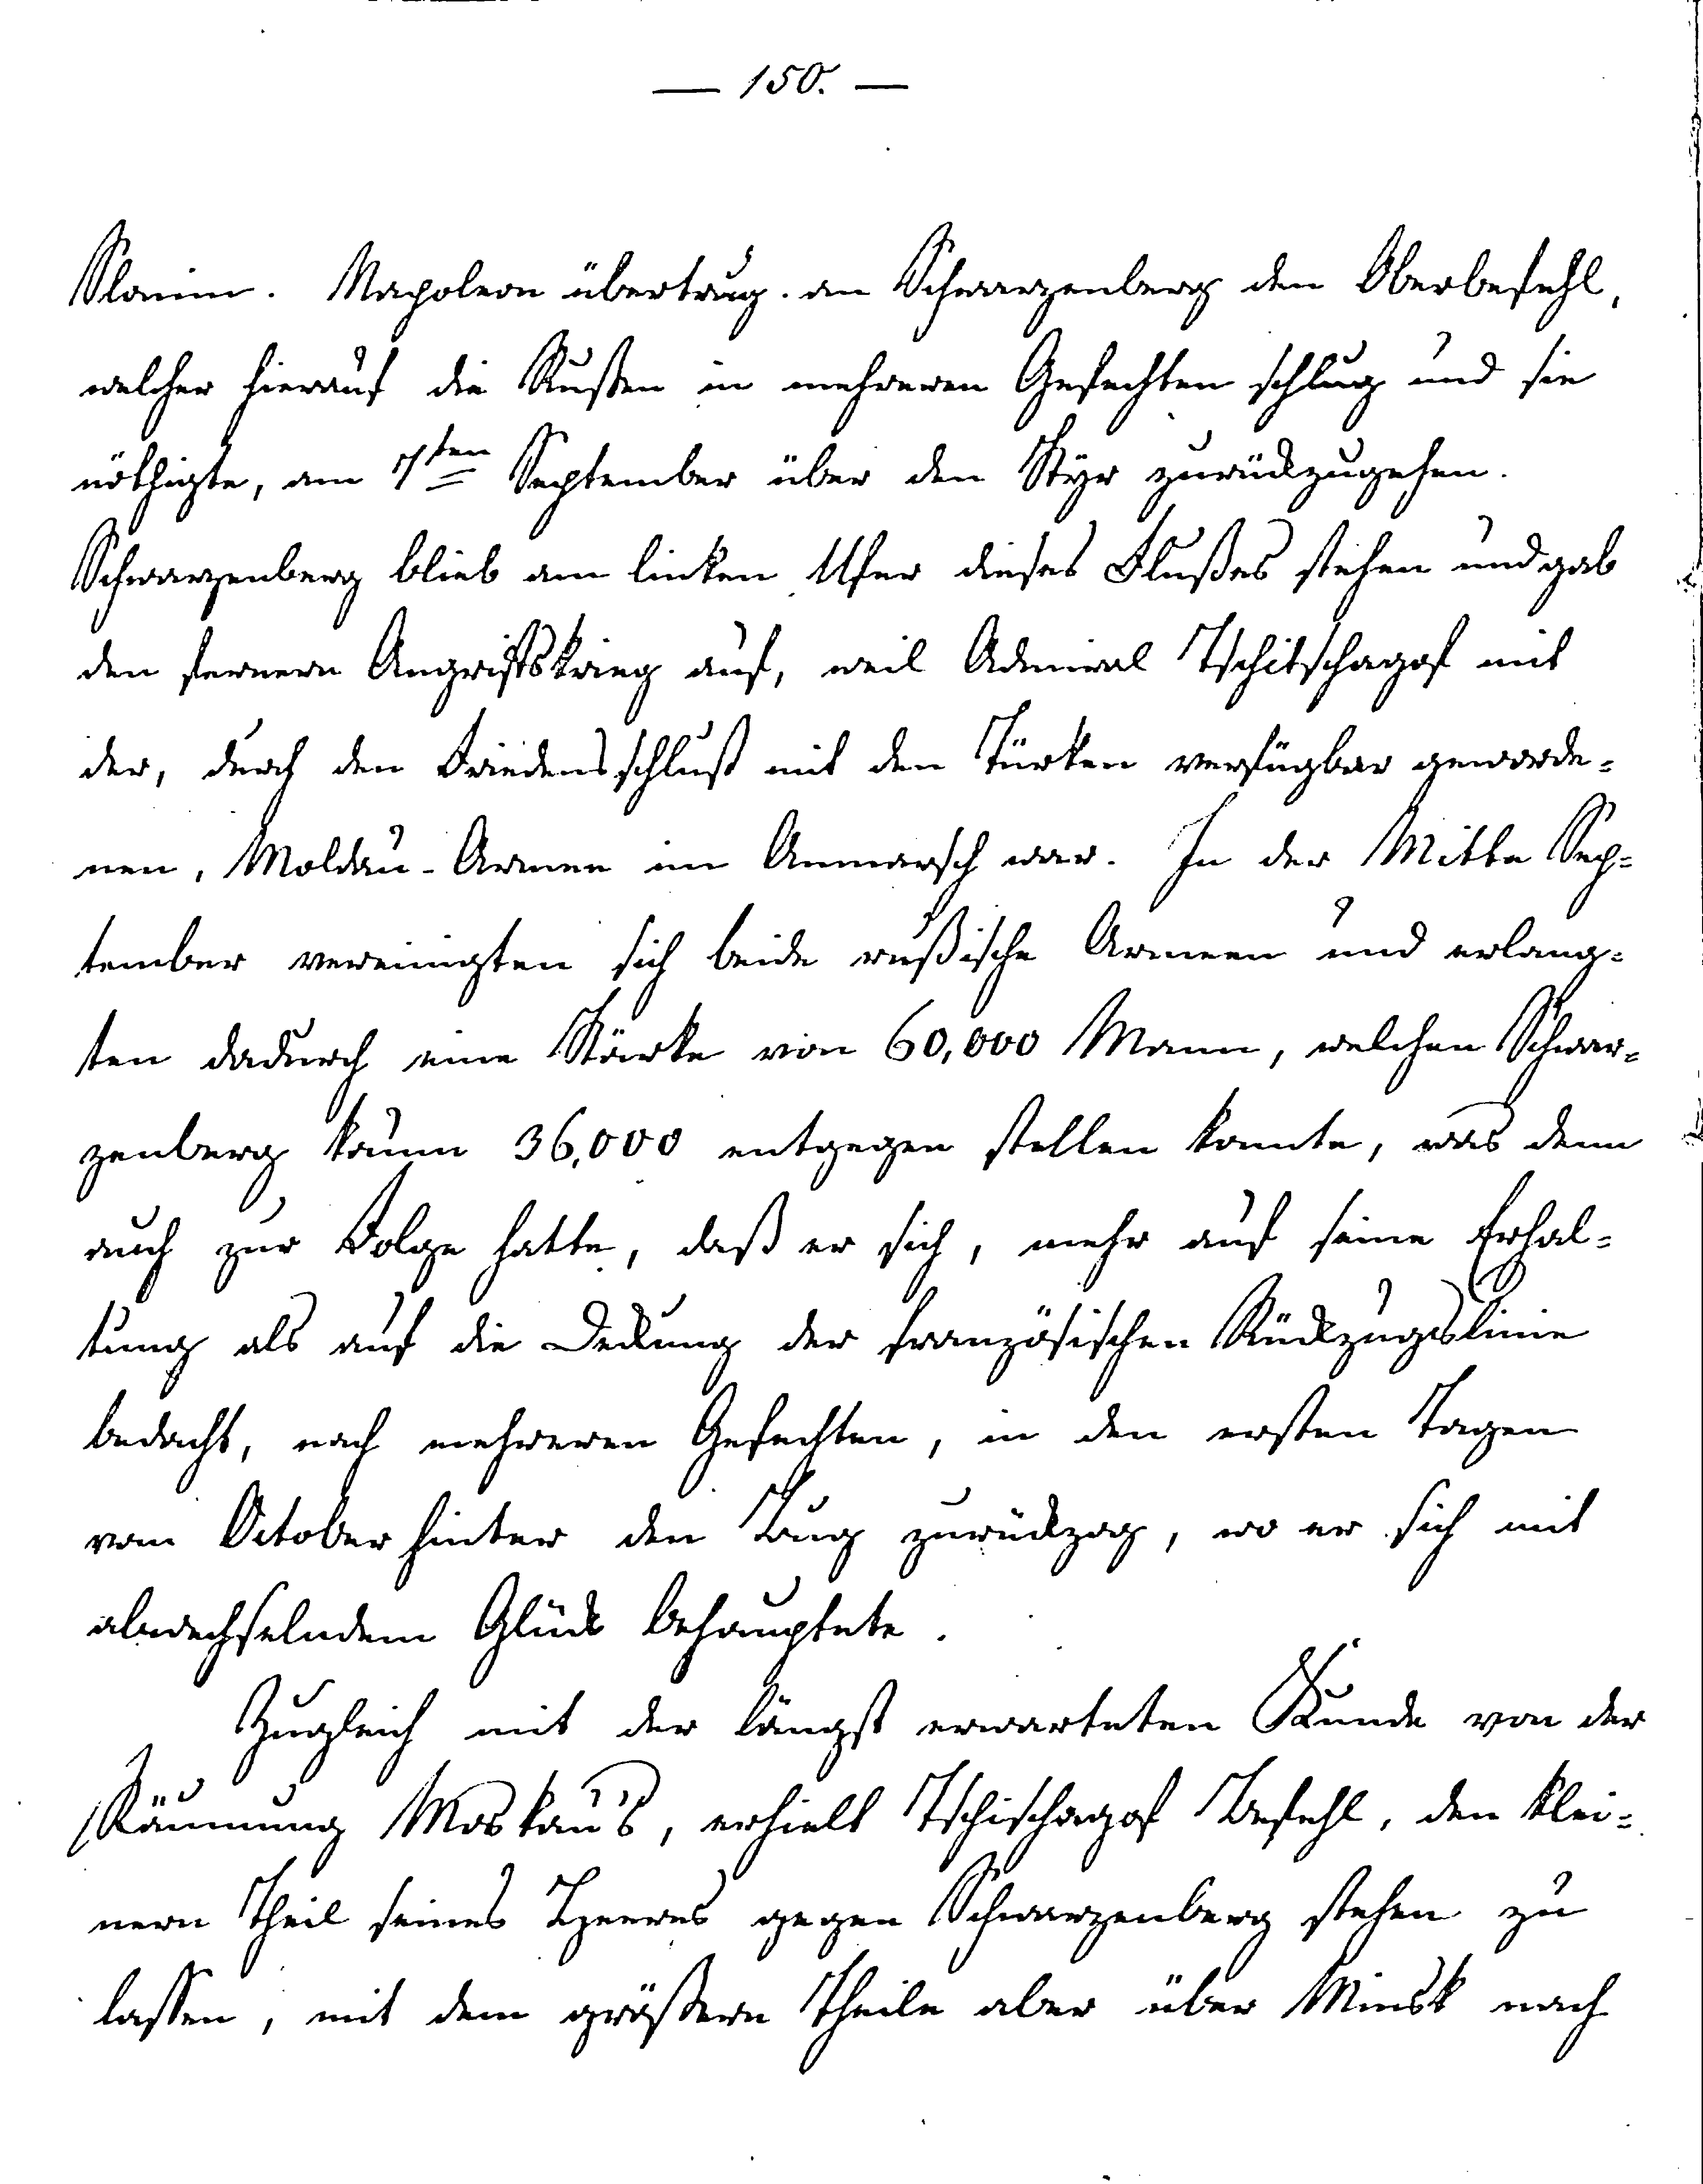 — 150. —
Slonim. Napoleon übertrug an Schwarzenberg den Oberbefehl,
welcher hierauf die Rußen in mehreren Gefechten schlug und sie
nöthigte, am 1ten September über den Styr zurückzugehen.
Schwarzenberg blieb am linken Ufer dieses Flußes stehen und gab
den fernern Angriffskrieg auf, weil Admiral Tschitschagof mit
der, durch den Friedensschluß mit den Türken verfügbar geworde-
nen, Moldau-Armee im Anmarsch war. In der Mitte Sep-
tember vereinigten sich beide rußische Armeen und erlang-
ten dadurch eine Stärke von 60,000 Mann, welchen Schwar-
zenberg kaum 36,000 entgegen stellen konnte, was denn
auch zur Folge hatte, daß er sich, mehr auf seine Erhal-
tung als auf die Deckung der französischen Rückzugslinie
bedacht, nach mehreren Gefechten, in den ersten Tagen
vom October hinter den Bug zurückzog, wo er sich mit
abwechselndem Glück behauptete.
Zugleich mit der längst erwarteten Kunde von der
Räumung Moskau's, erhielt Tschischagof Befehl, den klei-
nern Theil seines Heeres gegen Schwarzenberg stehen zu
lassen, mit dem größern Theile aber über Minsk nach